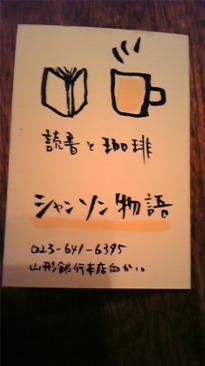 読書と珈琲
シャンソン物語
023-641-6395
山形銀行本店向かい